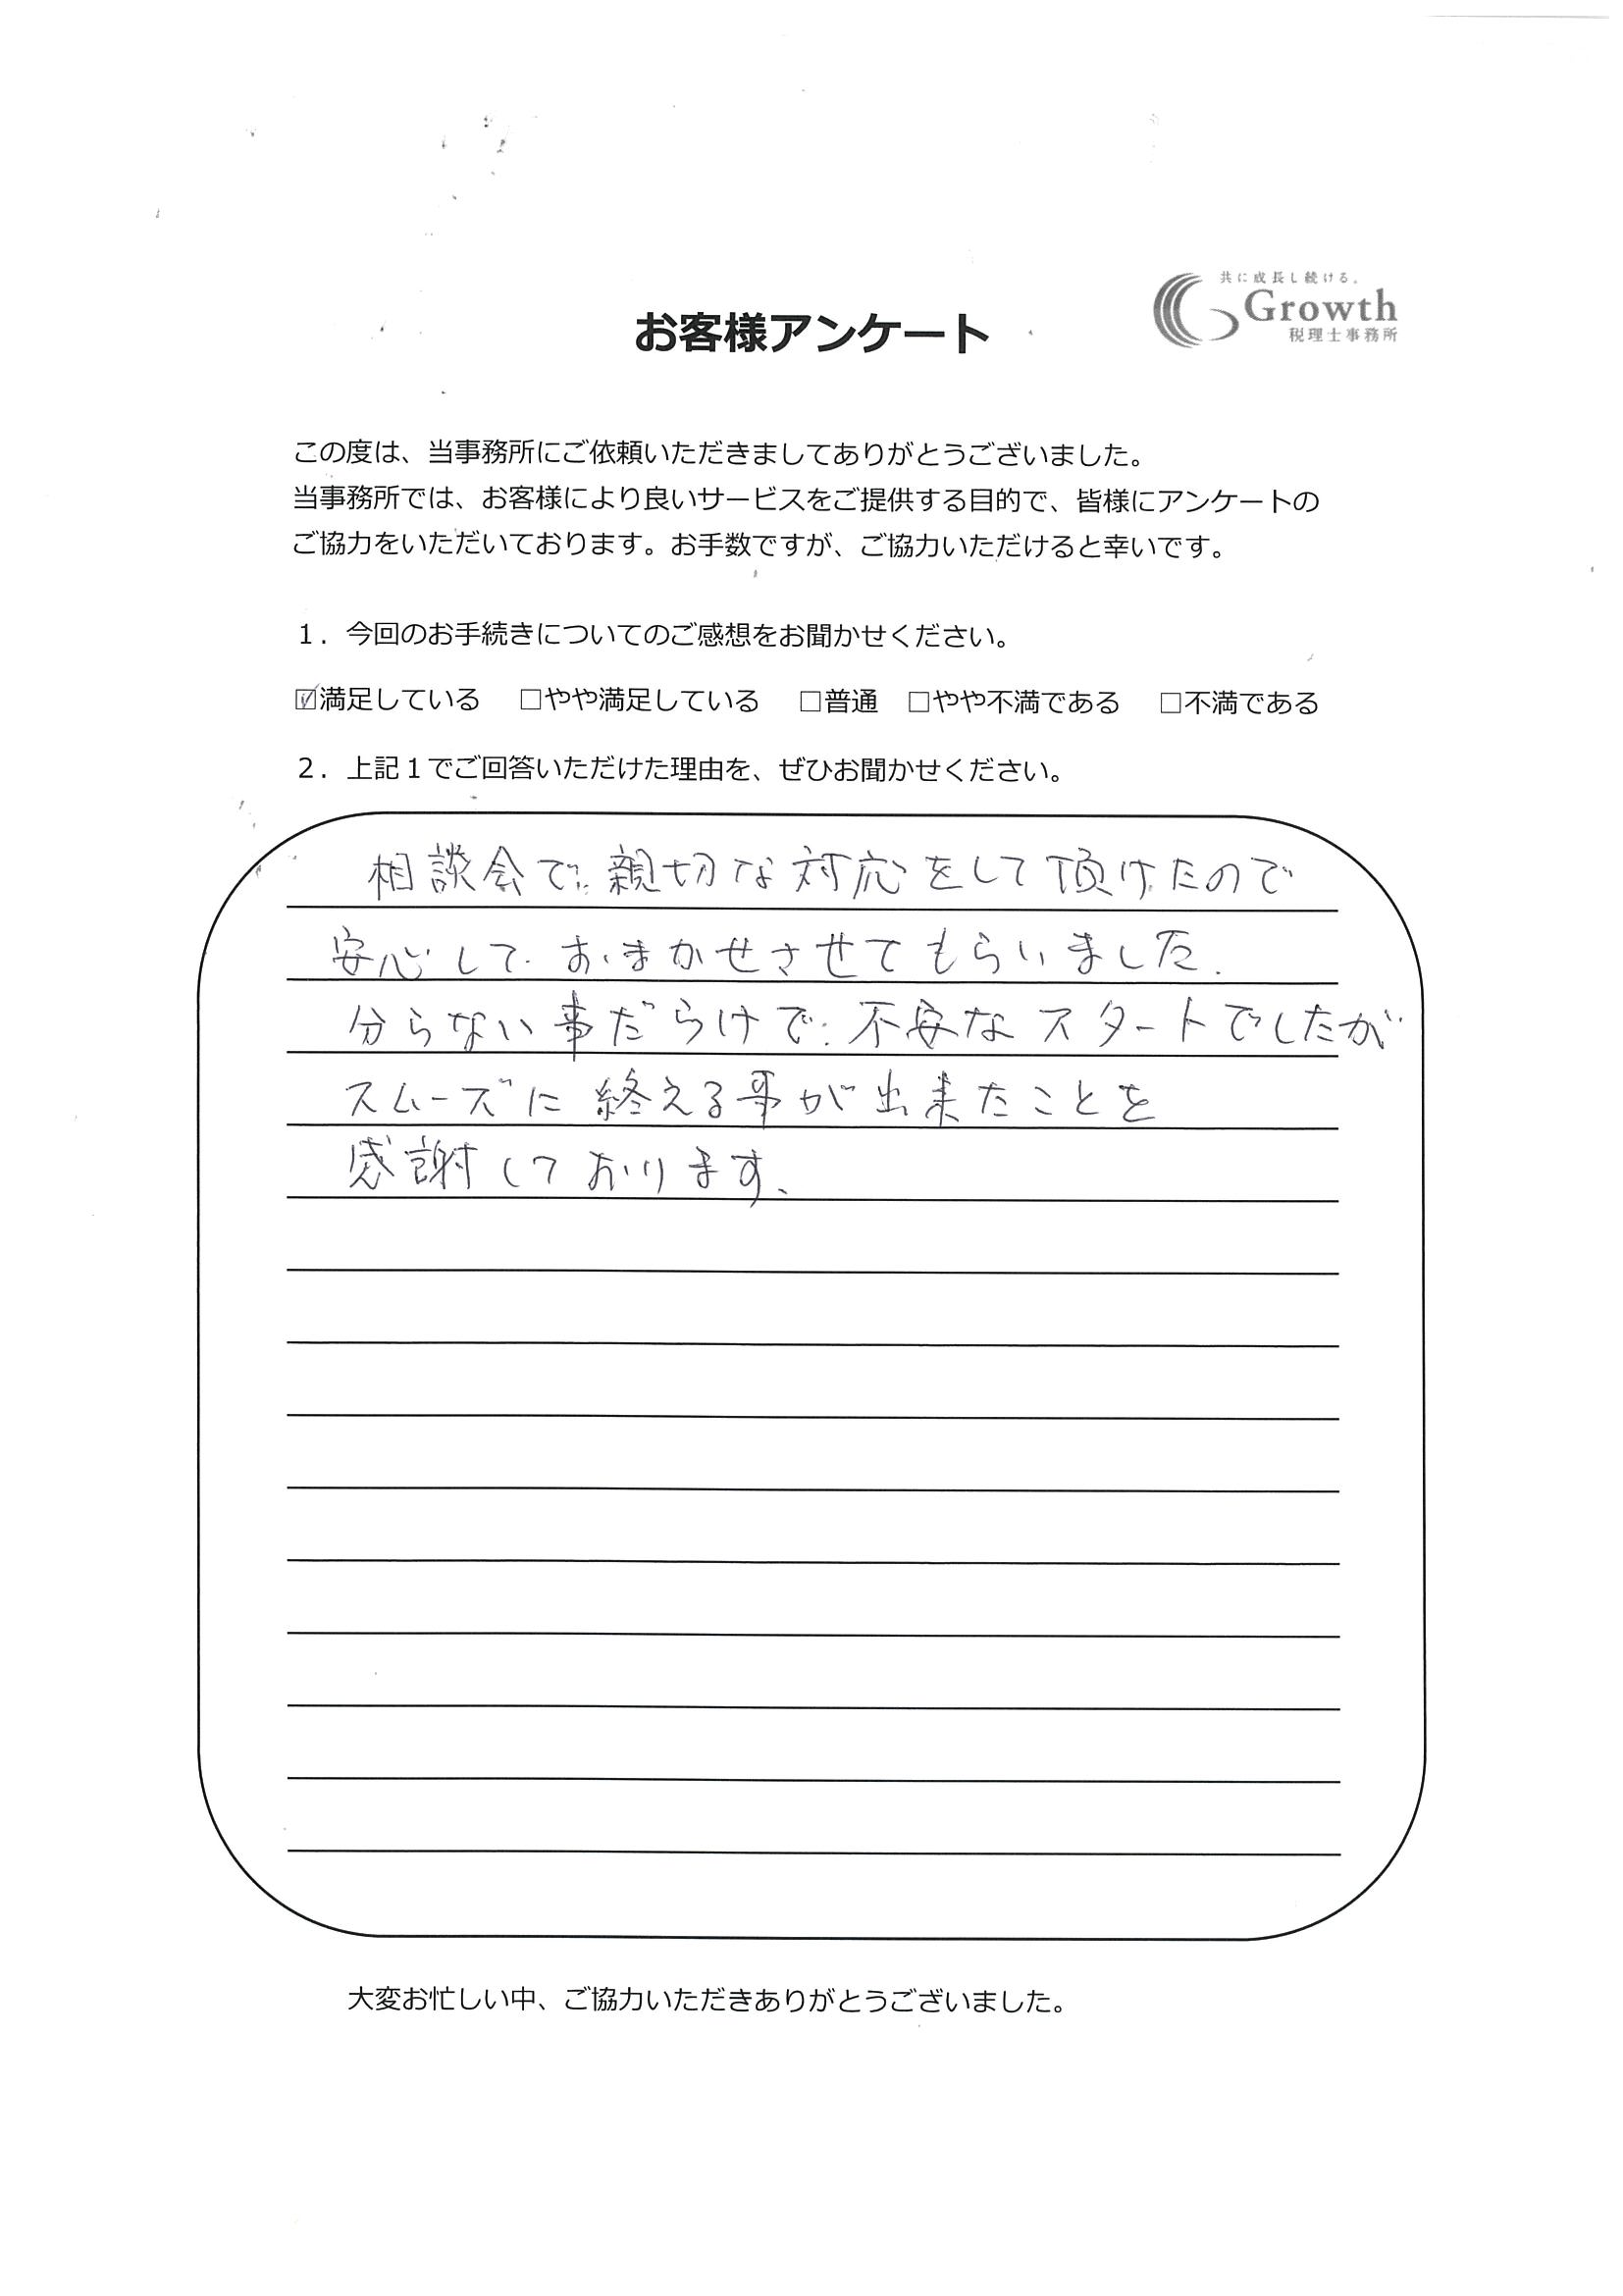 共に成長し続ける。
Growth
税理士事務所
お客様アンケート
この度は、当事務所にご依頼いただきましてありがとうございました。
当事務所では、お客様により良いサービスをご提供する目的で、皆様にアンケートの
ご協力をいただいております。お手数ですが、ご協力いただけると幸いです。
１．今回のお手続きについてのご感想をお聞かせください。
☑満足している　□やや満足している　□普通　□やや不満である　□不満である
２．上記１でご回答いただけた理由を、ぜひお聞かせください。
相談会で親切な対応をして頂けたので
安心して おまかせさせてもらいました.
分らない事だらけで 不安なスタートでしたが
スムーズに終える事が出来たことを
感謝しております、
大変お忙しい中、ご協力いただきありがとうございました。